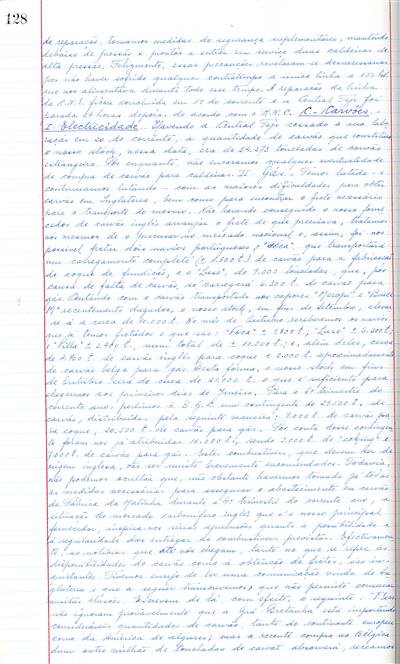 128
de reparação, tomamos medidas de segurança suplementares, mantendo
debaixo de pressão e prontas a entrar em serviço duas caldeiras de
alta pressão. Felizmente, essas precauções revelaram-se desnecessarias
por não haver surgido qualquer contratempo a unica linha a 150 kv.
que nos alimentava durante todo esse tempo. A reparação da linha
da C.N.E. ficou concluida em 12 do corrente e a Central Tejo foi
parada 24 horas depois, de acordo com o R.N.C. C - Carvões. -
I. Electricidade - Havendo a Central Tejo cessado a sua labo-
ração em 20 do corrente, a quantidade de carvão que constituia
o nosso stock, nessa data, era de 24.373 toneladas de carvão
estrangeiro. Por enquanto, não encaramos qualquer eventualidade
de compra de carvão para caldeiras. II Gás. - Temos lutado - e
continuamos lutando - com as maiores dificuldades para obter
carvão em Inglaterra, bem como para encontrar o frete necessario
para o transporte do mesmo. Não havendo conseguido o nosso forne-
cedor de carvão inglês arranjar o frete de que precisava, tratamos
nós mesmos de o procurar no mercado nacional e, assim, foi-nos
possivel fretar dois navios portugueses; o "Foca", que transportará
um carregamento completo (± 1.800 t.) de carvão para a fabricação
de coque de fundição, e o "Luso", de 9.000 toneladas, que, por
causa de falta de carvão, se carregará 6.200 t. de carvão para
gás. Contando com o carvão transportado nos vapores
recentemente chegados, o nosso stock, em fins de Setembro, elevar-
se-á a cerca de t. No mês de Outubro receberemos os navios
que já temos fretados e que são: "Foca" ± 1.800 t.; "Luso" ± 6.200 t.
e ± 2.400 t., num total de ± t.; e, além deles, cerca
de t. de carvão inglês para coque e 2.000 t. aproximadamente
de carvão belga para gás. Desta forma, o nosso stock em fins
de Outubro será de cerca de 21.000 t. o que é suficiente para
chegarmos aos primeiros dias de Janeiro. Para o 4º trimestre do
corrente ano, pedimos á um contingente de t. de
carvão, distribuidas pela seguinte maneira: t. de carvão pa-
ra coque, 20.500 t. de carvão para gás. Por conta desse contingen-
te foram nos já atribuidas t., sendo t. de "coking" e
t. de carvão para gás. Estes combustiveis, que devem ser de
origem inglesa, vão ser muito brevemente encomendados. Todavia,
não podemos ocultar que, não obstante havermos tomado já todas
as medidas necessarias para assegurar o abastecimento em carvão
da Fabrica da Matinha durante o 4º trimestre do corrente ano, a
situação do mercado carbonifero inglês que é o nosso principal
fornecedor, inspira-nos sérias apreensões quanto a possibilidade e
a regularidade das entregas do combustivel previsto. Efectivamen-
te, as noticias que até nós chegam, tanto no que se refere ás
disponibilidades do carvão como á obtenção de fretes, são in-
quietantes. Tivemos ensejo de ler uma comunicação vinda de In-
glaterra e que a seguir transcrevemos, que não permite conservar
muitas ilusões. Escrevem de lá, com efeito, o seguinte:
não ignoram provávelmente que a Grã Bretanha está importando
consideráveis quantidades de carvão, tanto do continente europeu
como da América e algures; mas a recente compra na Bélgica
dum outro milhão de toneladas de carvão absorverá, receamos